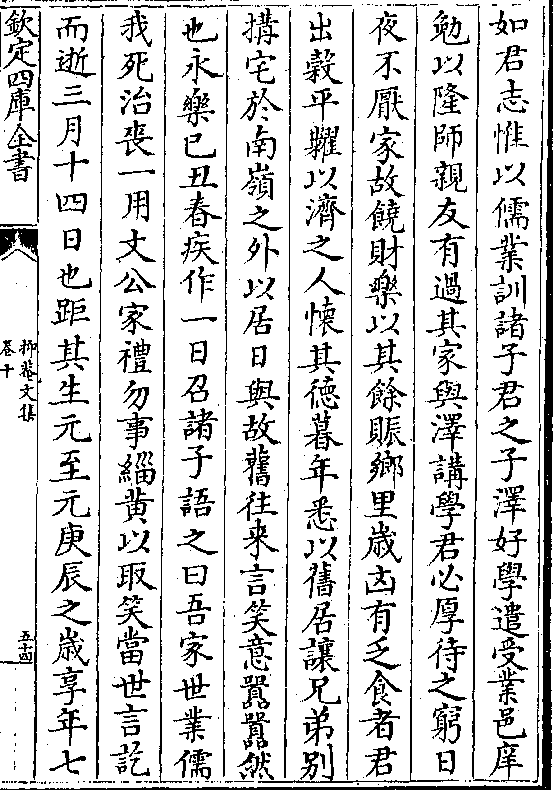 如君志惟以儒業訓諸子君之子澤好學遣受業邑庠
勉以隆師親友有過其家與澤講學君必厚待之窮日
夜不厭家故饒財樂以其餘賑鄉里歳凶有乏食者君
出穀平糶以濟之人懐其德暮年悉以舊居讓兄弟别
搆宅於南嶺之外以居日與故舊徃來言笑意嚣嚣然
也永樂已丑春疾作一日召諸子語之曰吾家世業儒
我死治喪一用文公家禮勿事緇黄以取笑當世言訖
而逝三月十四日也距其生元至元庚辰之歳享年七
欽定四庫全書
抑菴文集
卷十
五十四